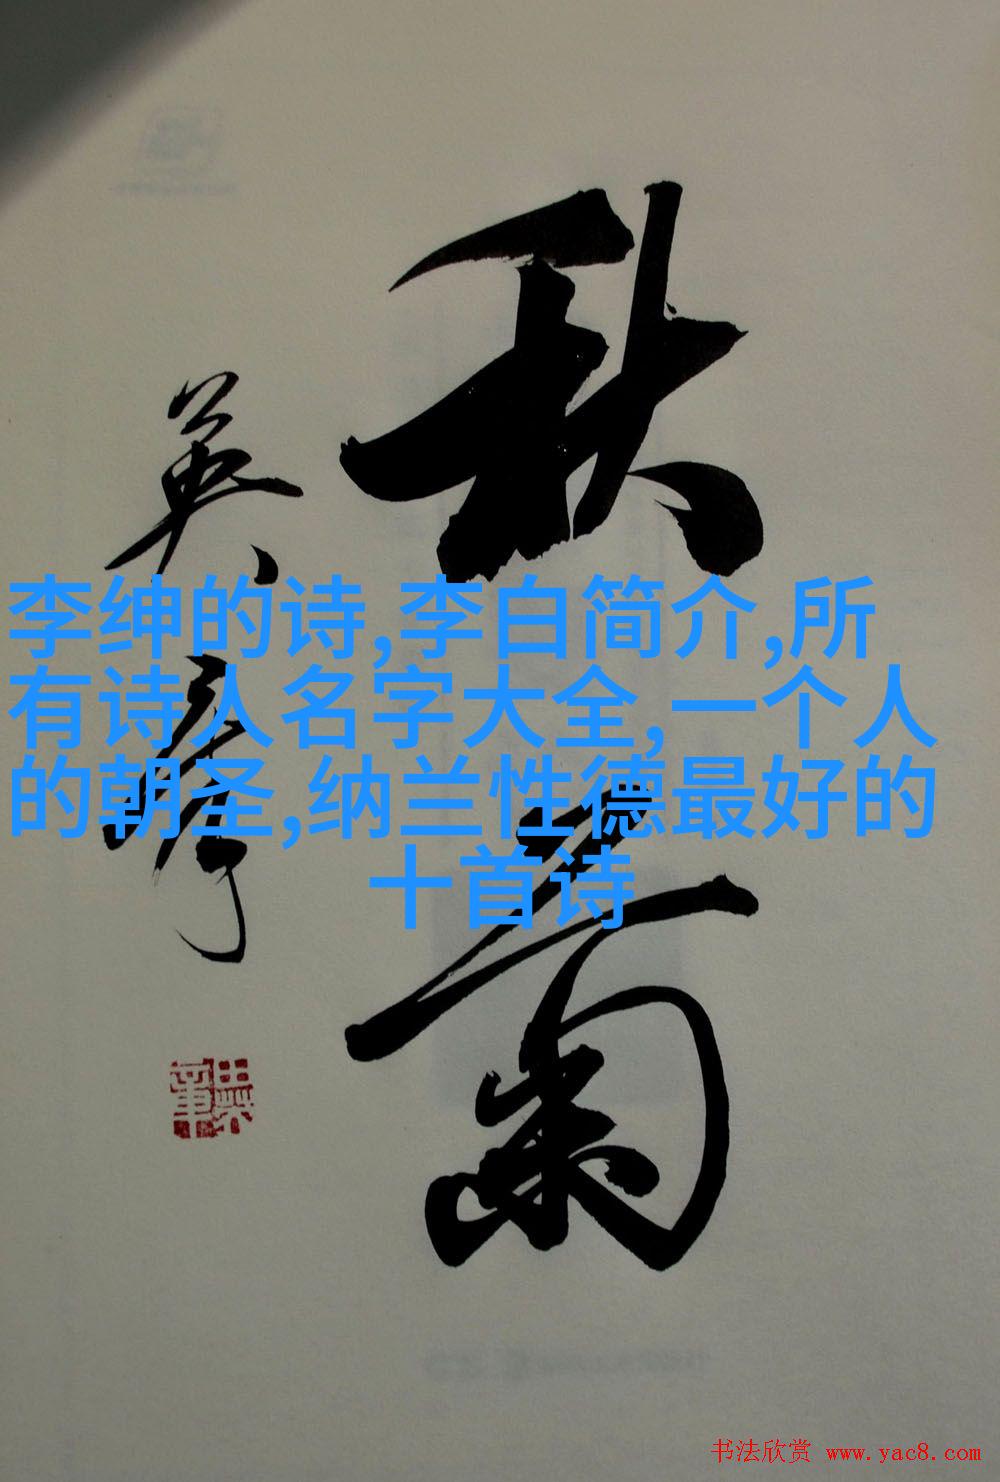 秋菊
英彦
李绅的诗,李白简介,所
有诗人名字大全,一个人
的朝圣,纳兰性德最好的
十首诗
书法欣赏 www.yac8.com